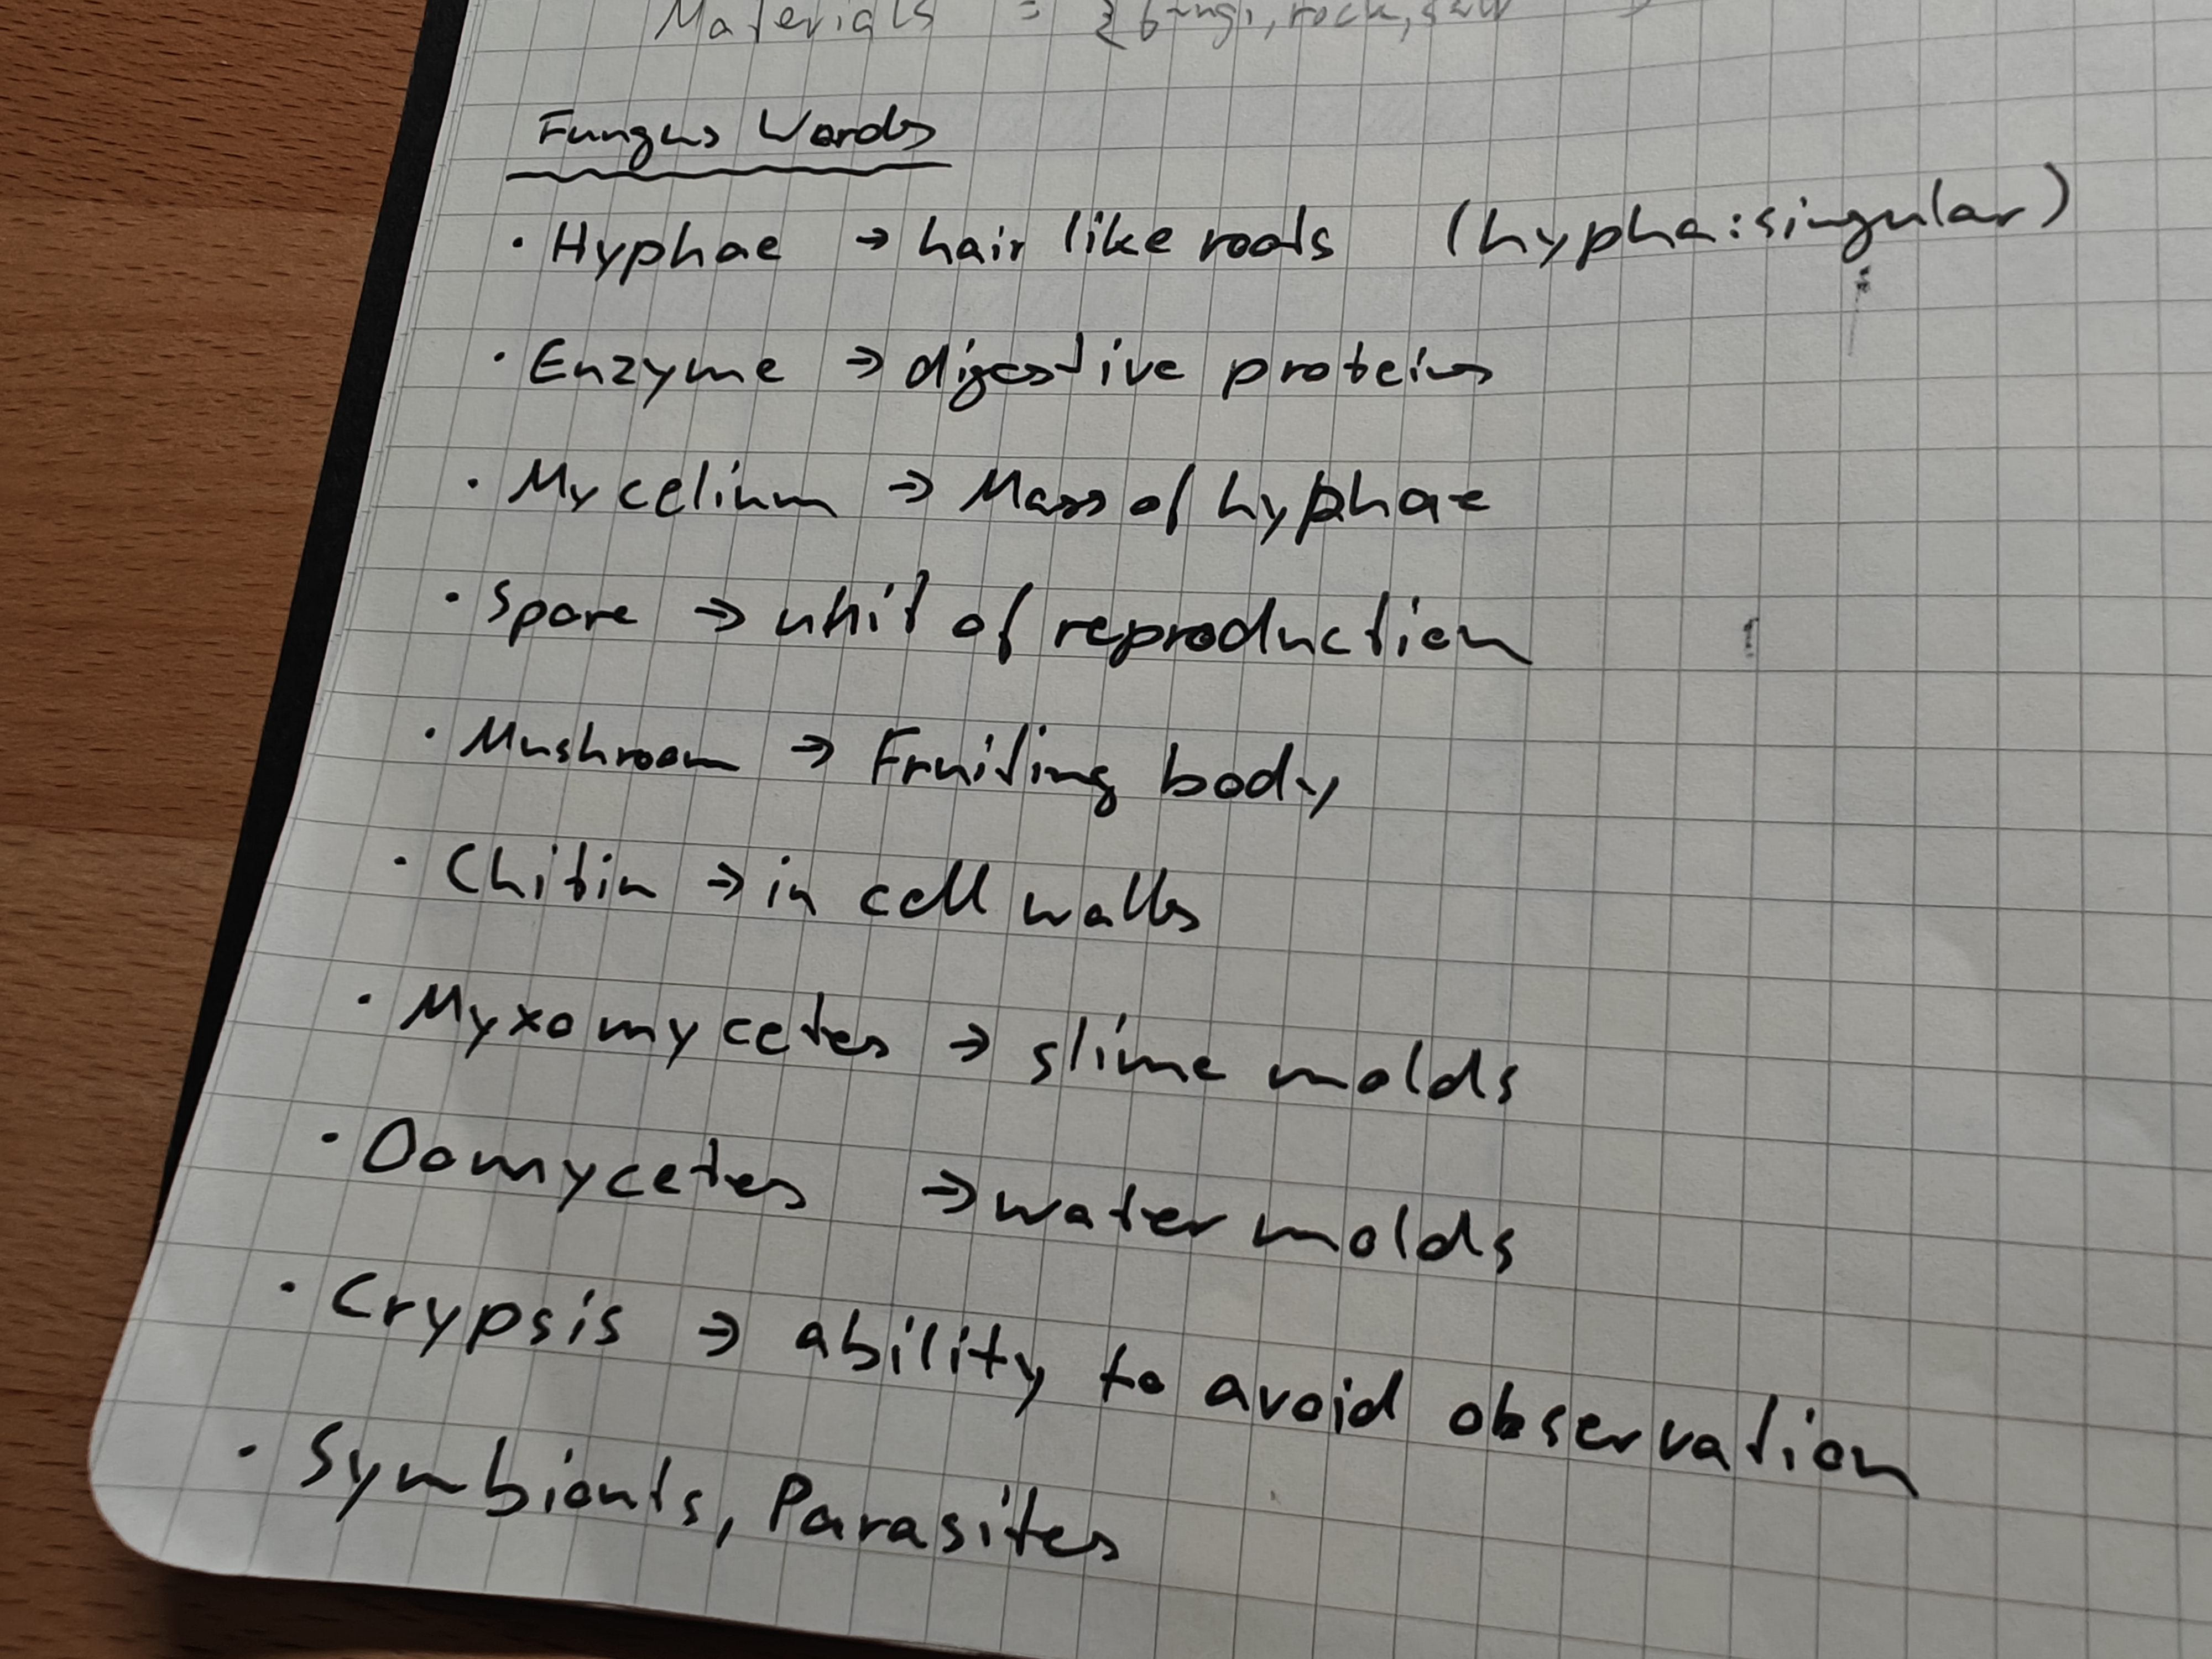 Materials = {fungi, rock,
Fungus Words
· Hyphae → hair like roots (hypha:singular)
· Enzyme → digestive proteins
· Mycelium → Mass of hyphae
· Spore → unit of reproduction
· Mushroom → Fruiting body
· Chitin → in cell walls
· Myxomycetes → slime molds
· Oomycetes → water molds
· Crypsis → ability to avoid observation
· Symbionts, Parasites